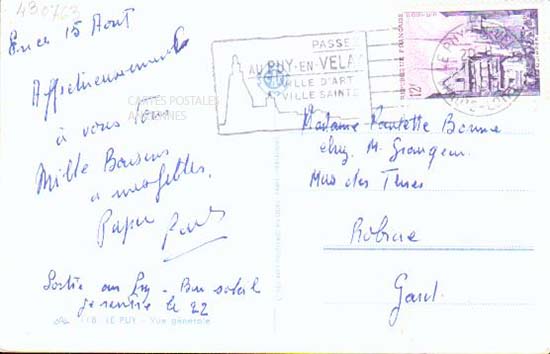 430763
15 Août
Affectueusement
à vous tous
Mille Baisers
à mes filles,
Papa
Sortie au Puy - Bon soleil
je rentre le 22
118. LE PUY - Vue générale
CARTES POSTALES
ANCIENNES
PASSEZ
AU PUY-EN-VELAY
VILLE D'ART
VILLE SAINTE
LE PUY
12F
Madame Paulette Bonne
chez M. Grangeon
Mas des Terres
Robiac
Gard